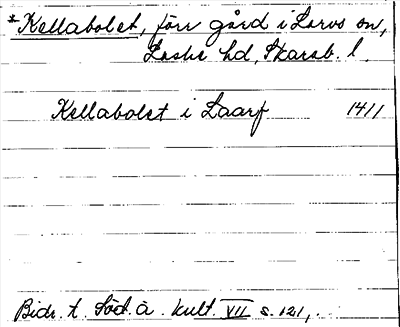 *Kellabolet, förr gård i Larvs sn,
Laske hd, Skarab. l.
Kellabolet i Laarf 1411
Bidr. t. Söd. å. kult. VII s. 121,.